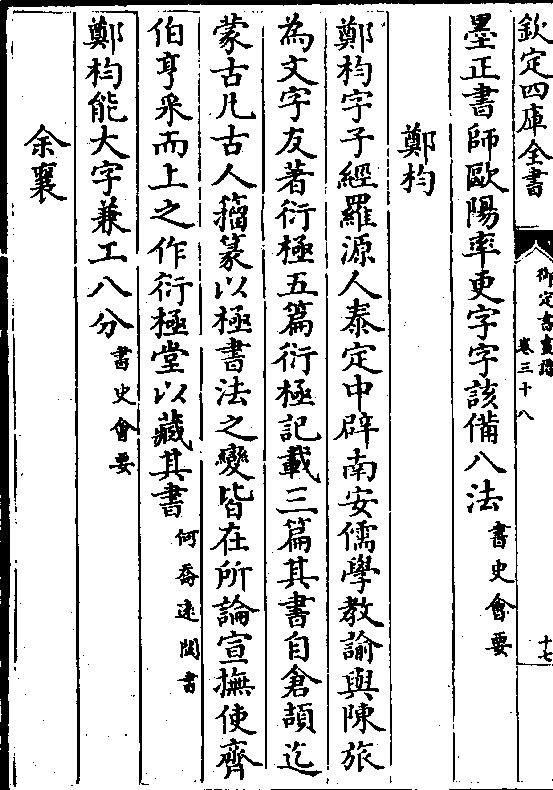 欽定四庫全書
御定書畫譜
卷三十八
十七
墨正書師歐陽率更字字該備八法書史會要
鄭杓
鄭杓字子經羅源人泰定中辟南安儒學教諭與陳旅
為文字友著衍極五篇衍極記載三篇其書自倉頡迄
蒙古凡古人籀篆以極書法之變皆在所論宣撫使齊
伯亨采而上之作衍極堂以藏其書何喬遠閩書
鄭杓能大字兼工八分書史會要
余襄